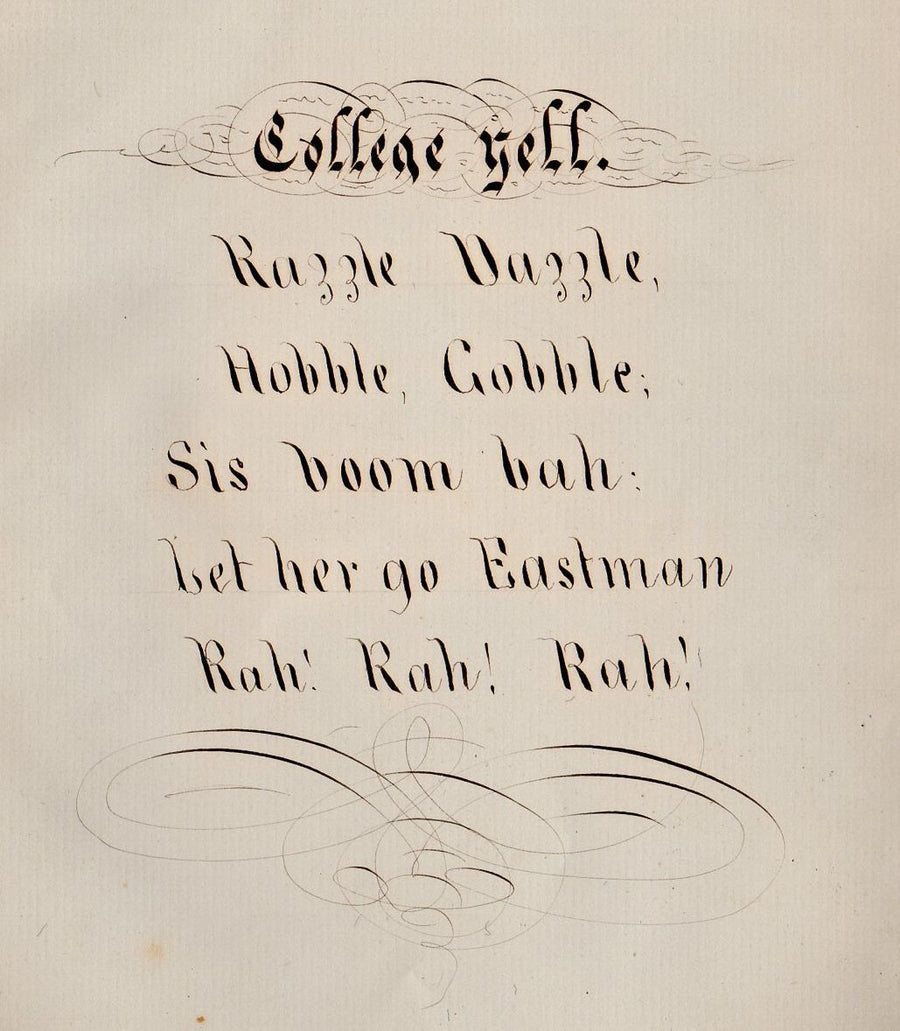 College Yell.
Razzle Dazzle,
Hobble, Gobble;
Sis boom bah:
Let her go Eastman
Rah! Rah! Rah!